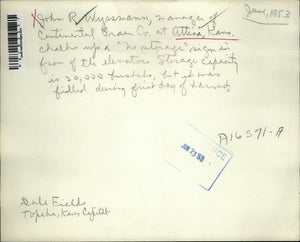 June, 1953
John P. Wyssmann, manager of
Continental Grain Co. at Attica, Kans.
chalks up a "no storage" sign in
fron of the elevator. Storage capacity
is 20,000 bushels, but it was
filled during first day of harvest.
A16571-A
JUN 23 '53
Dale Fields
Topeka, Kans Capital